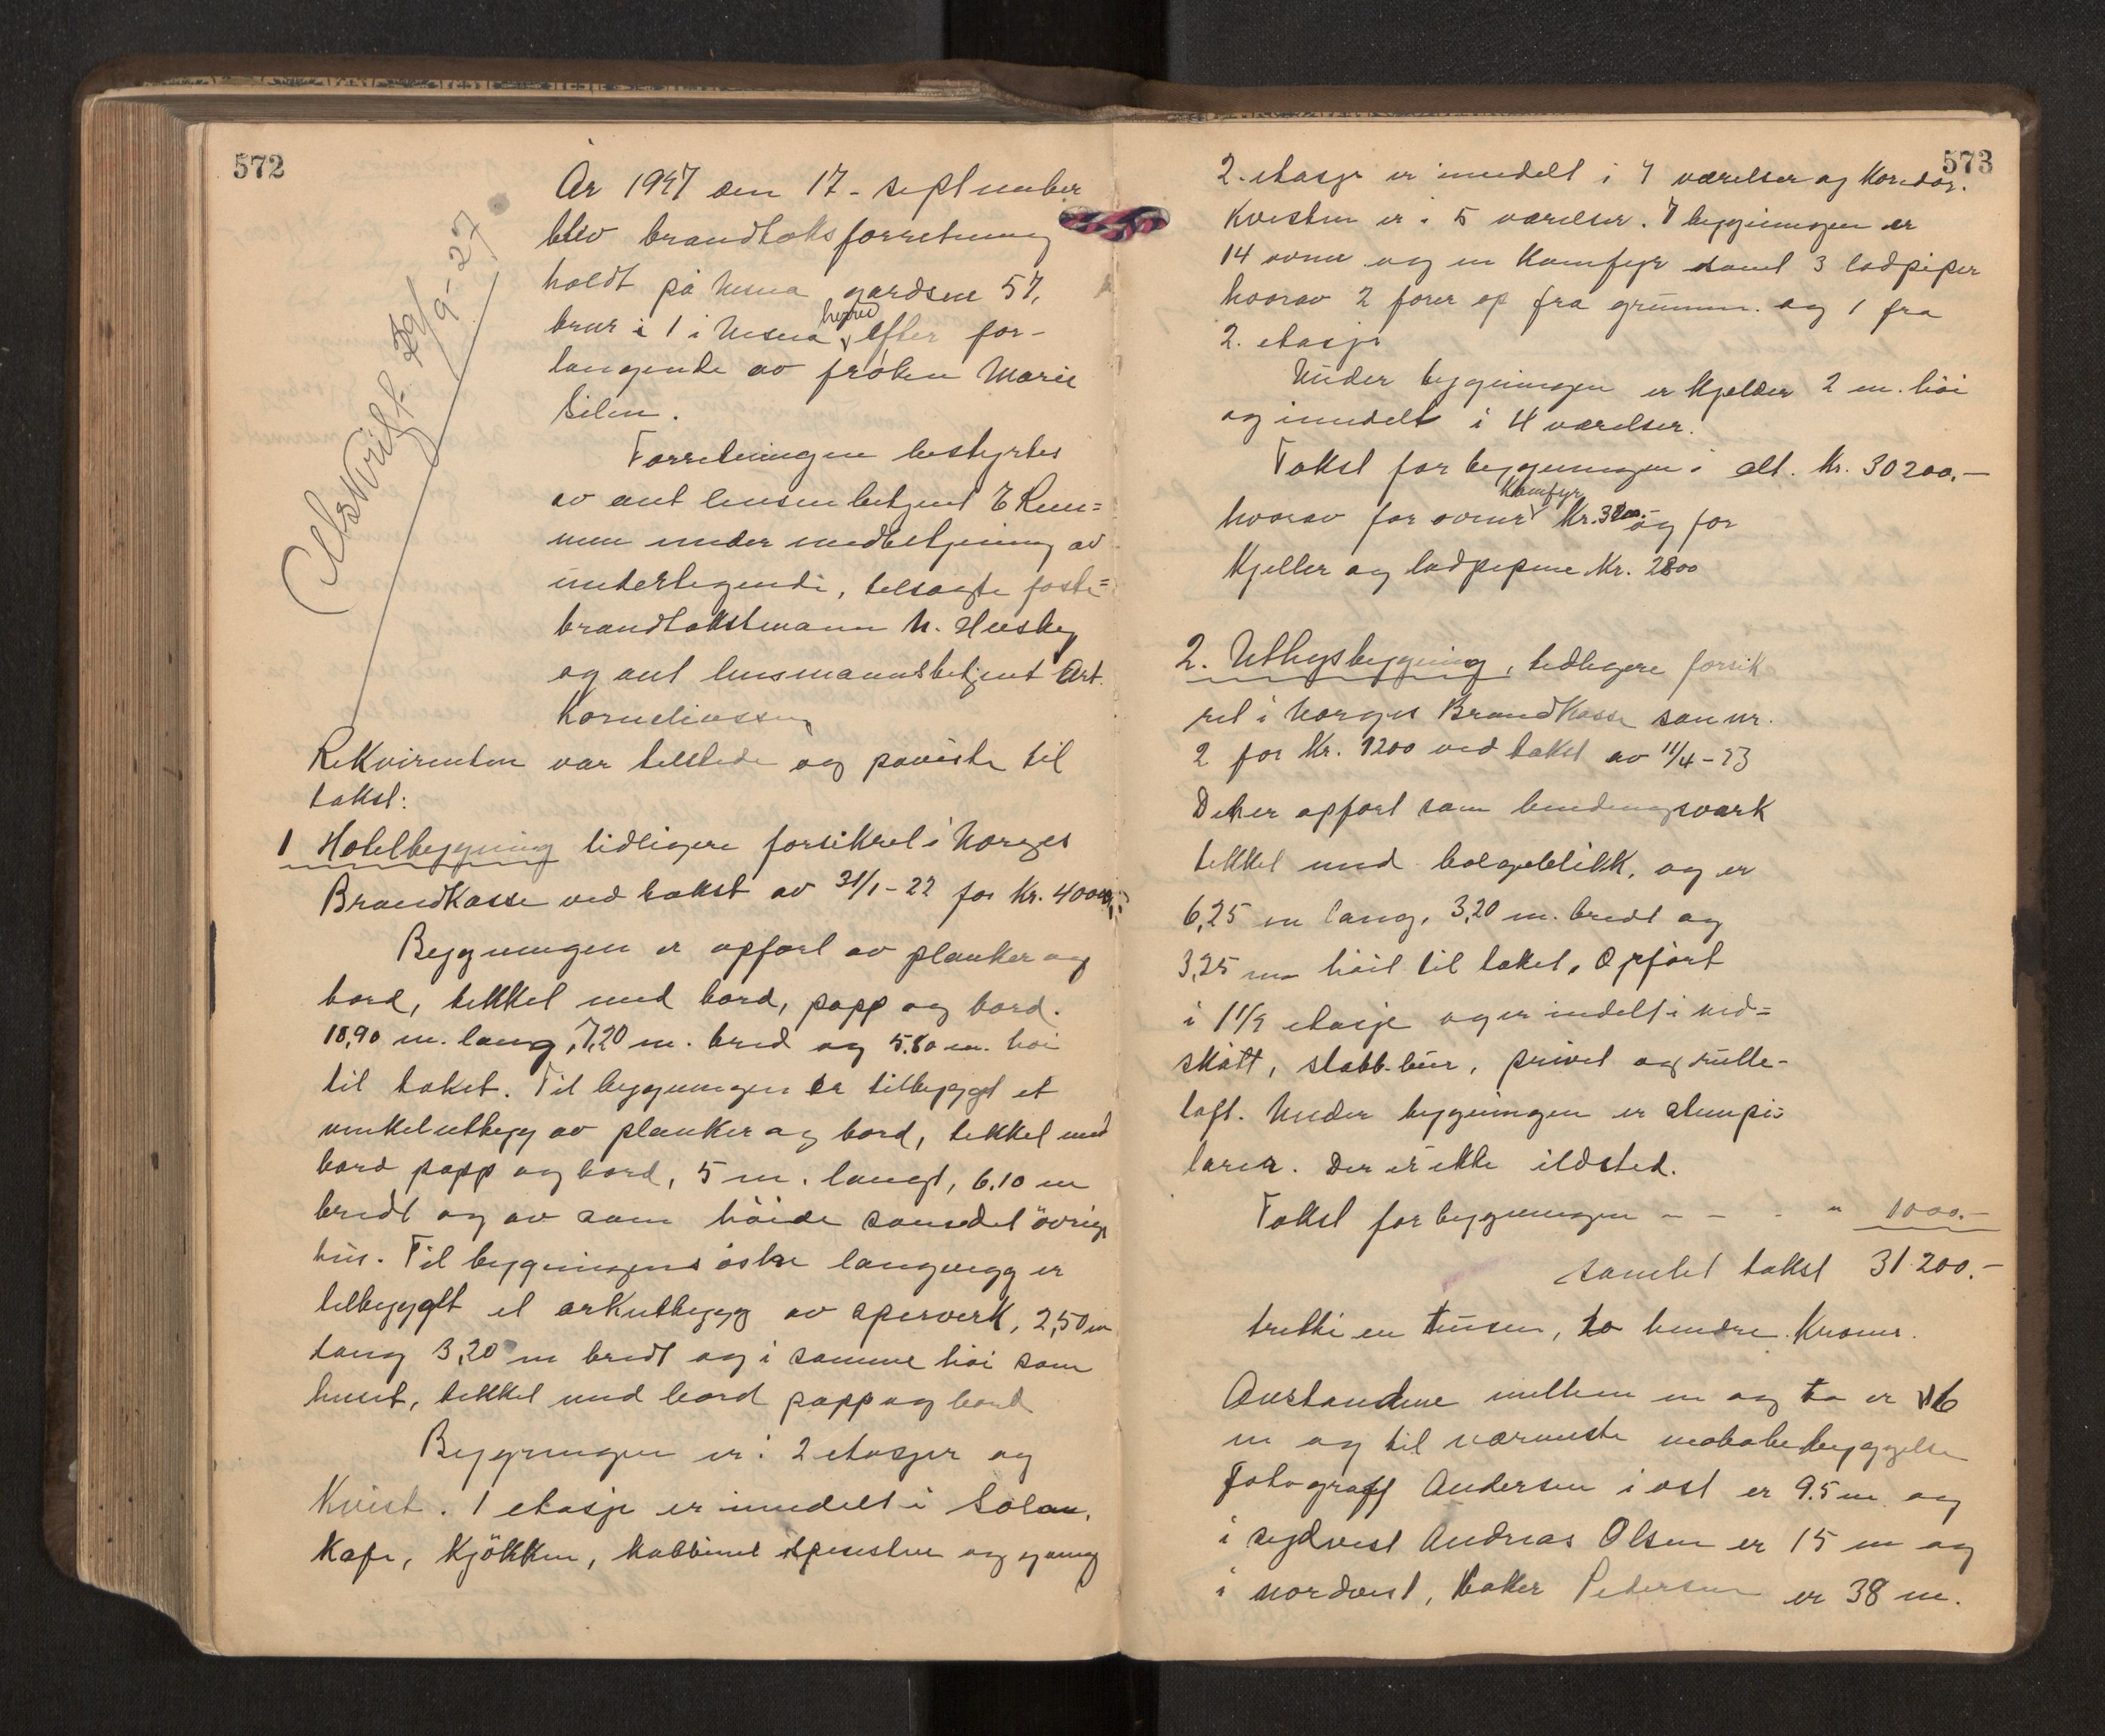 572
År 1927 den 17 - september
blev brandtaksforretning
holdt på Nesna gardsnr 57,
bruk i 1 i Nesna herred efter for-
langende av frøken Marie
Silen.
Forretningen bestyrtes
av ant lensmbetjent E Rem=
men under medbetjening av
undertegnede, tilsagte faste=
brandtakstmann N. Husby
og ant lensmannsbetjent Art.
Korneliussen
Avskrift 29/9-27
Rekvirenten var tilstede og påviste til
takst:
1 Hotelbygning tidligere forsikret i Norges
Brandkasse ved takst av 31/1-22 for Kr. 40000,-
Bygningen er opført av planker og
bord, tekket med bord, papp og bord.
18,90 m. lang, 7,20 m. bred og 5.80 m. høi
til taket. Til bygningen er tilbygget et
vinkelutbygg av planker og bord, tekket med
bord papp og bord, 5 m. langt, 6.10 m
bredt og av sam høide somedet øvrige
hus. Til bygningens østre langvegg er
tilbyggt et arkutbygg av sperverk, 2,50 m
lang 3,20 m bredt og i samme høi som
huset, tekket med bord papp og bord
Bygningen er i 2 etasjer og
Kvist. 1 etasje er inndelt i Salon,
Kafe, Kjøkken, kabbinet spisestue og gang
573
2. etasje er inndelt i 7 værelser og Koridor.
Kvisten er i 5 værelser. I bygningen er
14 ovner og en Komfyr samt 3 lodpiper
hvorav 2 fører op fra grunnen og 1 fra
2. etasje
Under bygningen er Kjelder 2 m. høi
og inndelt i 4 værelser.
Takst for bygningen i alt. Kr. 30200.-
hvorav for ovner Komfyr Kr. og for
Kjeller og lodpipene Kr. 2800
2. Uthysbygning, tidligere forsik
ret i Norges Brandkasse som nr.
2 for Kr. 1200 ved takst av 11/4-23
Det er opført som bindingsverk
tekket med bølgeblikk, og er
6,25 m lang, 3,20 m. bredt og
3,25 m høit til taket, Opført
i 1 1/2 etasje og er indelt i ved=
skått, stabb-bur, privet og rulle-
loft. Under bygningen er stenpi-
larer. Der er ikke ildsted.
Takst for bygningen - - - " 1000.-
samlet takst 31200.-
tretti en tusen, to hundre Kroner.
Avstandene mellem en og to er 16
m og til nærmeste nabobebyggelse
Fotograf Andersen i øst er 9.5 m og
i sydvest Andreas Olsen er 15 m og
i nordvest, Baker Petersen er 38 m.